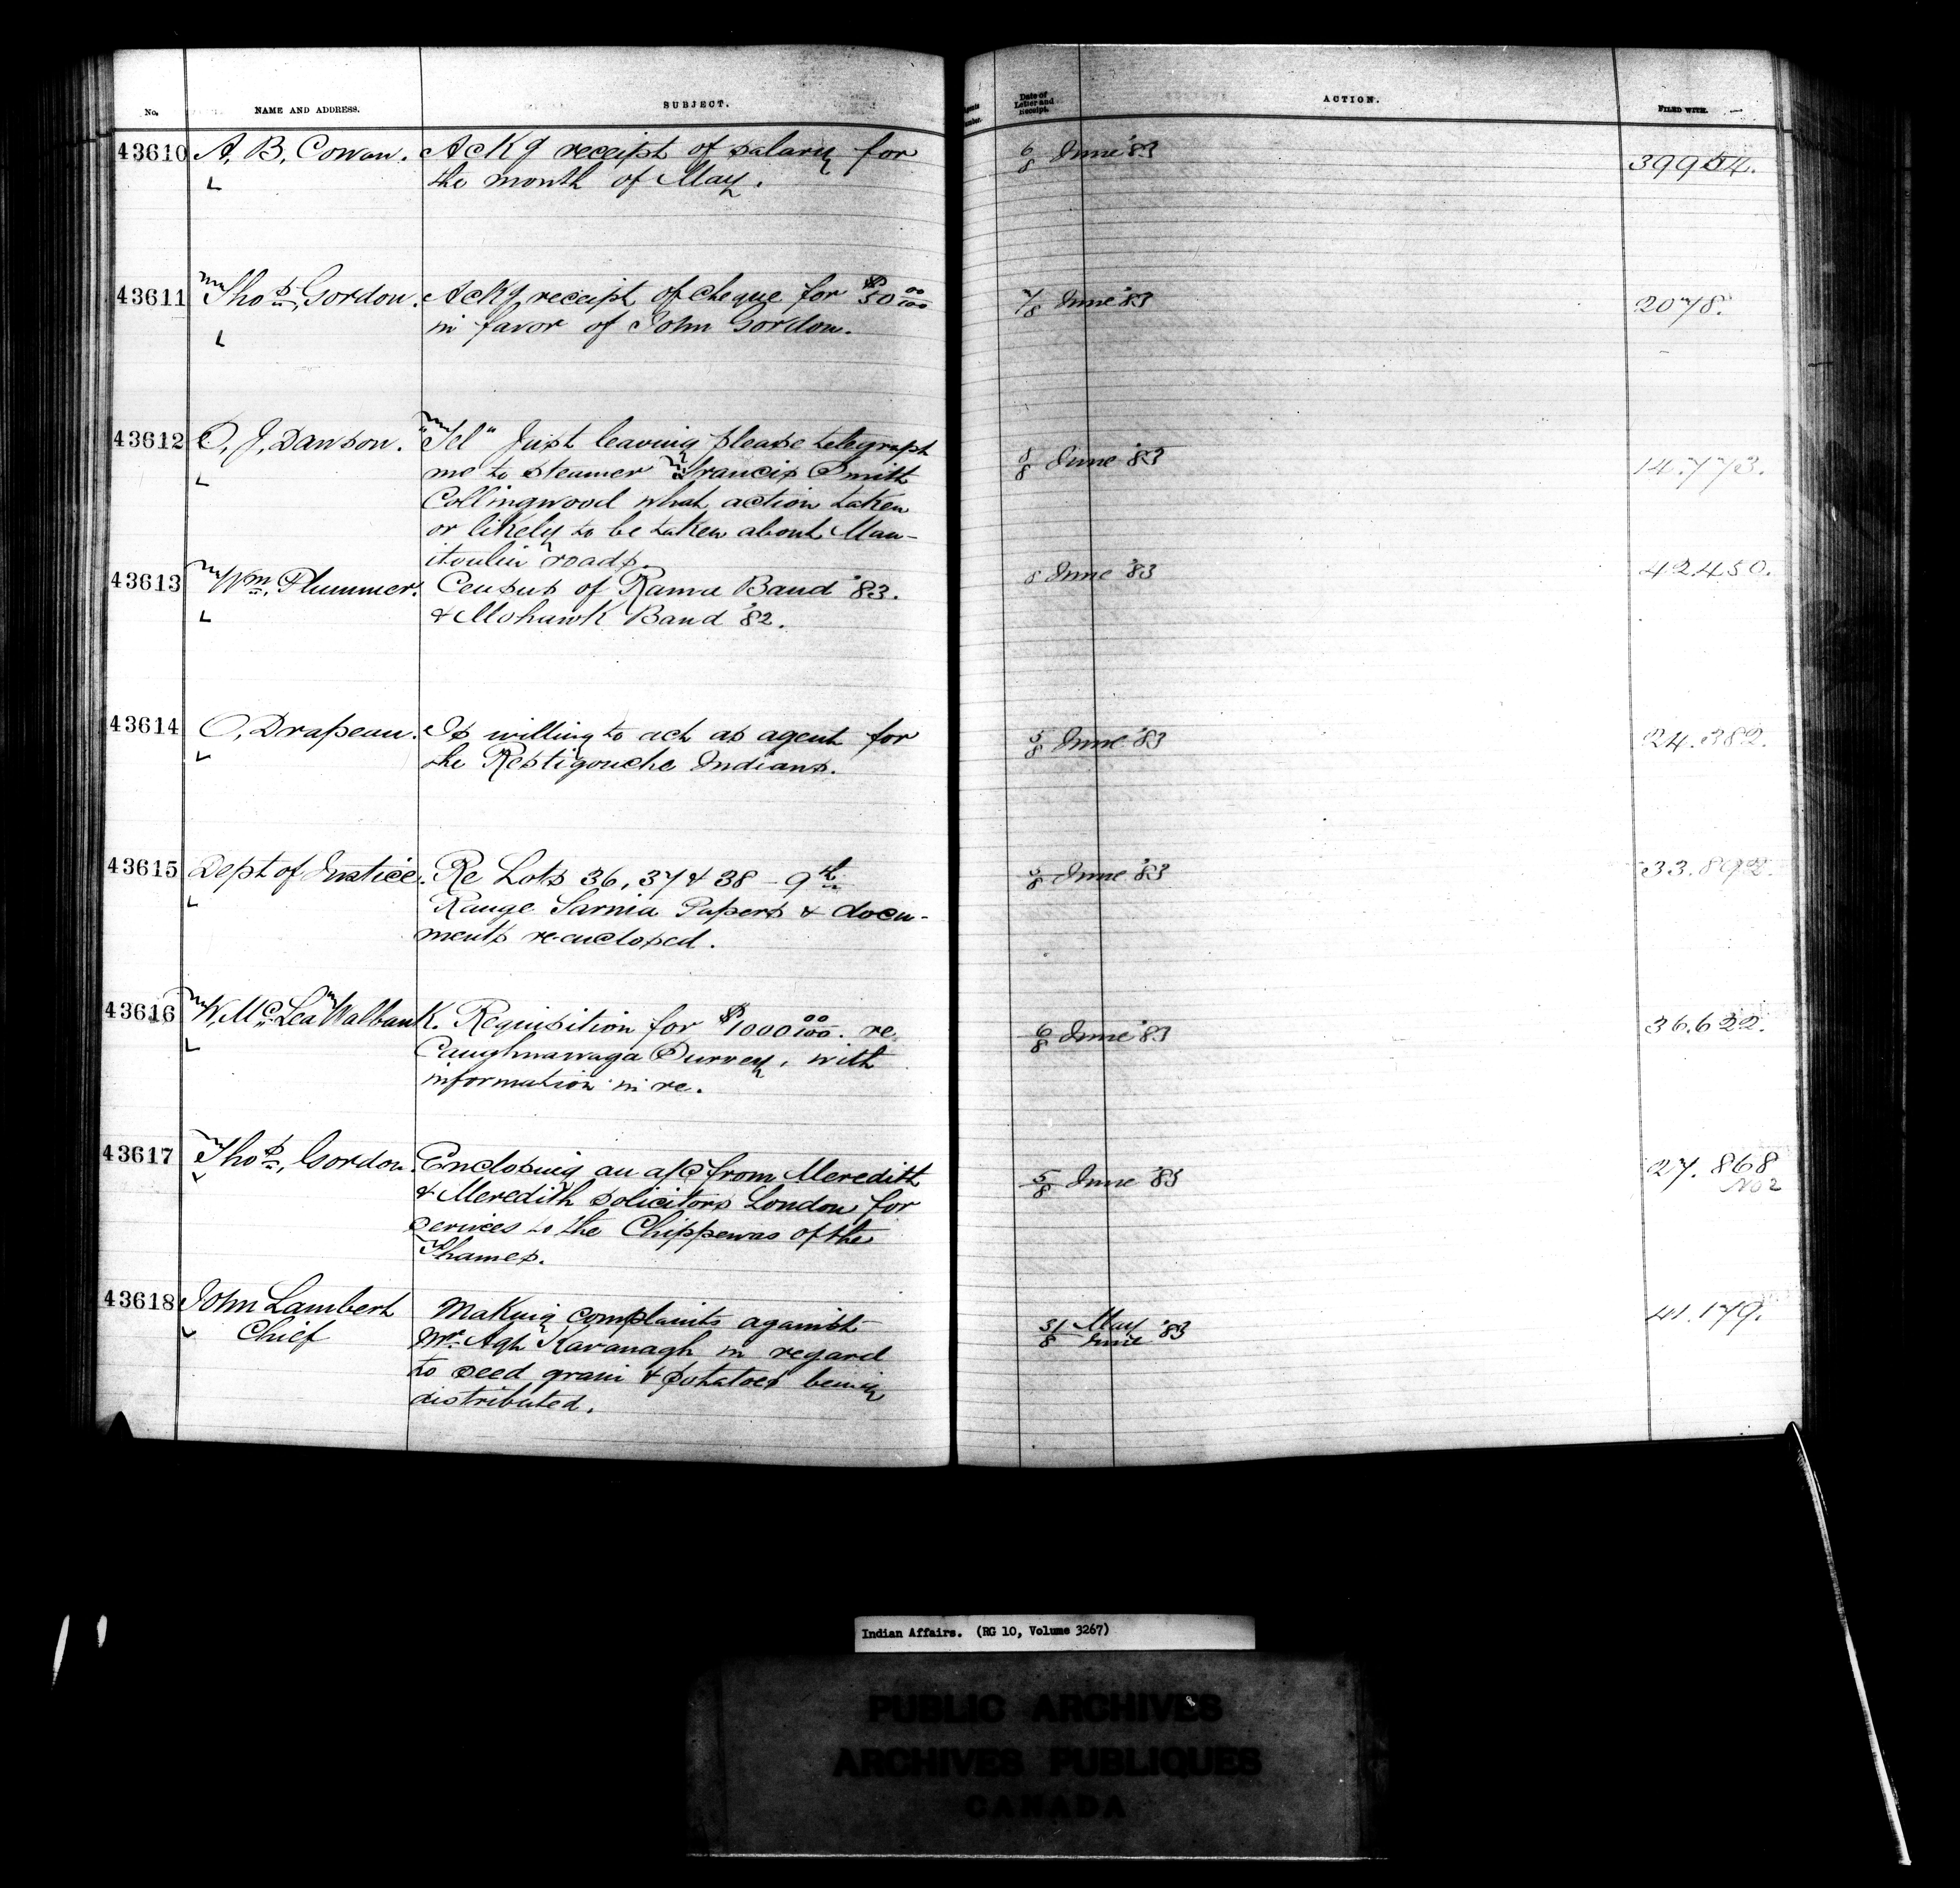 No. NAME AND ADDRESS. SUBJECT. Date of Letter and Receipt. ACTION. FILED WITH.
43610 A. B. Cowan. Ackg receipt of salary for 6/8 June '83 39954.
the month of May.
43611 Thos. Gordon. Ackg receipt of cheque for $50 00/100 7/8 June '83 2078.
in favor of John Gordon.
43612 J. Dawson. "Tel" Just leaving please telegraph 8/8 June '83 14.773.
me to steamer Francis Smith
Collingwood what action taken
or likely to be taken about Man-
itoulin roads.
43613 Wm. Plummer. Census of Rama Band '83. 8 June '83 42.450.
& Mohawk Band '82.
43614 O. Drapeau. Is willing to act as agent for 5/8 June '83 24.382.
the Restigouche Indians.
43615 Dept of Justice. Re Lots 36, 37 & 38 - 9th 5/8 June '83 33.892.
Range Sarnia Papers & docu-
ments re-enclosed.
43616 W. Mc. Lea Walbank. Requisition for $1000 00/100. re 6/8 June '83 36.622.
Caughnawaga Survey, with
information in re.
43617 Thos. Gordon. Enclosing an a/c from Meredith 5/8 June '83 27.868
& Meredith solicitors London for No 2
services to the Chippewas of the
Thames.
43618 John Lambert Making complaints against 31/8 May/June '83 41.179.
Chief Mr. Agt Kavanagh in regard
to seed grain & potatoes being
distributed.
Indian Affairs. (RG 10, Volume 3267)
PUBLIC ARCHIVES
ARCHIVES PUBLIQUES
CANADA